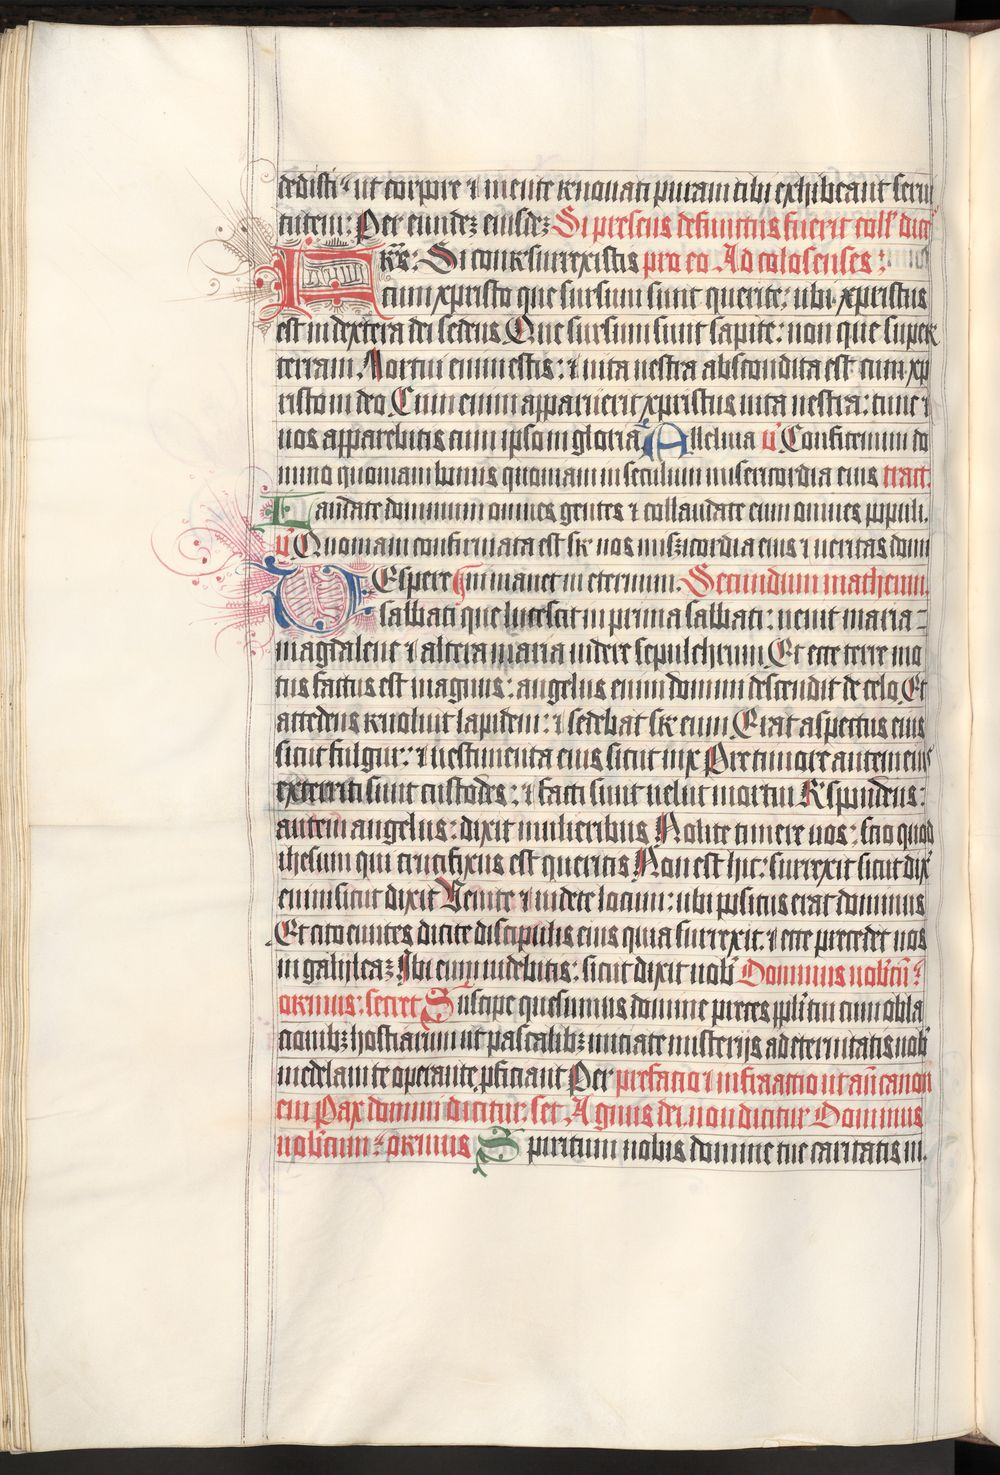 dedisti ut corpore ⁊ mente renouati puram tibi exhibeant serui
tutem: Per eundeꝫ eiusdeꝫ Si presens defunctus fuerit coll' dicit'
Si conresurrexistis pro eo Ad colosenses:
cum xpristo que sursum sunt querite: ubi xpristus
est in dextera dei sedens Que sursum sunt sapite: non que super
terram Mortui enim estis: ⁊ uita uestra abscondita est cum xp
risto in deo Cum enim apparuerit xpristus uita uestra: tunc ⁊
uos apparebitis cum ipso in gloria Alleluia v̓ Confitemini do
mino quoniam bonus quoniam in seculum misericordia eius tract.
Laudate dominum omnes gentes ⁊ collaudate eum omnes populi.
v̓ Quoniam confirmata est sr nos misꝫicordia eius ⁊ ueritas domi
Espere ni manet in eternum. Secundum matheum.
sabbati que lucescit in prima sabbati: uenit maria
magdalene ⁊ altera maria uidere sepulchrum Et ecce terre mo
tus factus est magnus: angelus enim domini descendit de celo Et
accedens reuoluit lapidem: ⁊ sedebat sr eum Erat aspectus eius
sicut fulgur: ⁊ uestimenta eius sicut nix Pre timore autem eius
exterriti sunt custodes: ⁊ facti sunt uelut mortui Respondens:
autem angelus: dixit mulieribus Nolite timere uos: scio quod
ihesum qui crucifixus est queritis Non est hic: surrexit sicut dix̓
enim sicut dixit Uenite ⁊ uidete locum: ubi positus erat dominus
Et cito euntes dicite discipulis eius quia surrexit. ⁊ ecce precedet uos
in galileaꝫ Ibi eum uidebitis: sicut dixit uob' Dominus uob'cū ⁊
oremus: secret Suscipe quesumus domine preces ppli tui cum obla
cionibꝫ hostiarum ut pascalibꝫ iniciate misterijs ad eternitatis nob'
medelam te operante proficiant Per prefatio ⁊ infra actio ut an̄ canon
em Pax domini dicitur. set Agnus dei non dicitur Dominus
uob'cum ⁊ oremus Spiritum nobis domine tue caritatis in.